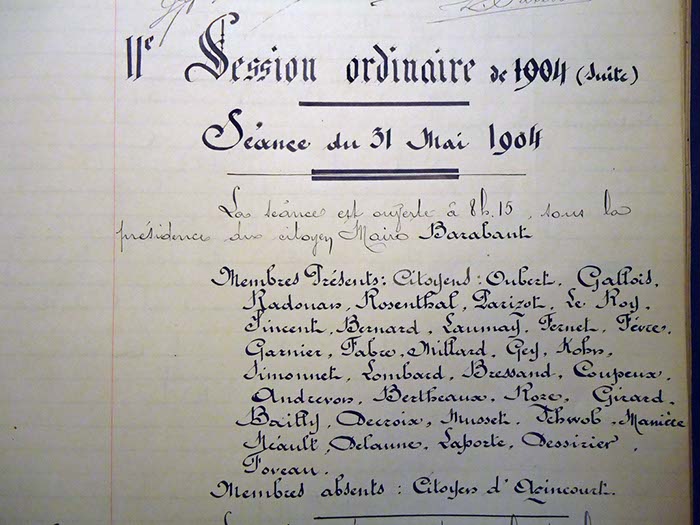 IIe Session ordinaire de 1904 (Suite)
Séance du 31 Mai 1904
La séance est ouverte à 8h.15, sous la
présidence du citoyen Maire Barabant
Membres Présents: Citoyens: Oubert, Gallois,
Radouan, Rosenthal, Parizot, Le Roy,
Vincent, Bernard, Launay, Fernet, Fèvre,
Garnier, Fabre, Millard, Gey, Kohn,
Simonnet, Lombard, Bressand, Coupeux,
Andrevon, Bertheaux, Roze, Girard,
Bailly, Decroix, Musset, Schwob, Manière
Héault, Delaune, Laporte, Dessirier,
Foveau.
Membres absents: Citoyen d'Azincourt.